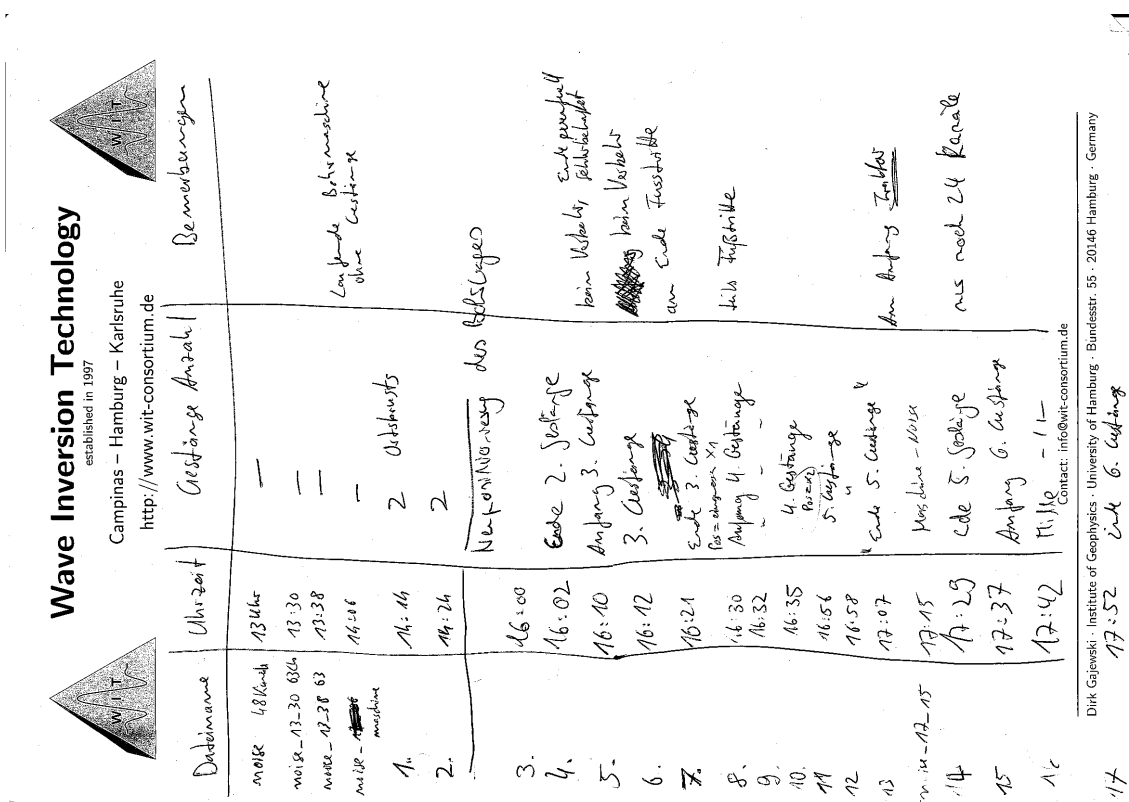 WIT
WIT
Wave Inversion Technology
established in 1997
Campinas – Hamburg – Karlsruhe
http://www.wit-consortium.de
Dateiname Uhrzeit Gestänge Anzahl Bemerkungen
noise 48 Kanäle 13 Uhr —
noise_13_30 63Ch 13:30 —
noise_13_38 63 13:38 — Laufende Bohrmaschine
ohne Gestänge
noise_ 14:06 –
maschine
1. 14:14 2
2. 14:24 2
Neupositionierung des
3. 16:00
4. 16:02 Ende 2. Gestänge kein Verkehr, Ende
5. 16:10 Anfang 3. Gestänge kein Verkehr
6. 16:12 3. Gestänge am Ende Fusstritte
7. 16:21 Ende 3. Gestänge
8. 16:30 Anfang 4. Gestänge teils Fußtritte
9. 16:32 " - " -
10. 16:35 4. Gestänge
11 16:56 5. Gestänge
12 16:58 "
13 17:07 "Ende 5. Gestänge" Am Anfang Traktor
noise_17_15 17:15 Maschine-Noise
14 17:29 Ende 5. Gestänge nur noch 24 Kanäle
15 17:37 Anfang 6. Gestänge
16 17:42 Mitte - " -
Contact: info@wit-consortium.de
Dirk Gajewski · Institute of Geophysics · University of Hamburg · Bundesstr. 55 · 20146 Hamburg · Germany
17 17:52 Ende 6. Gestänge